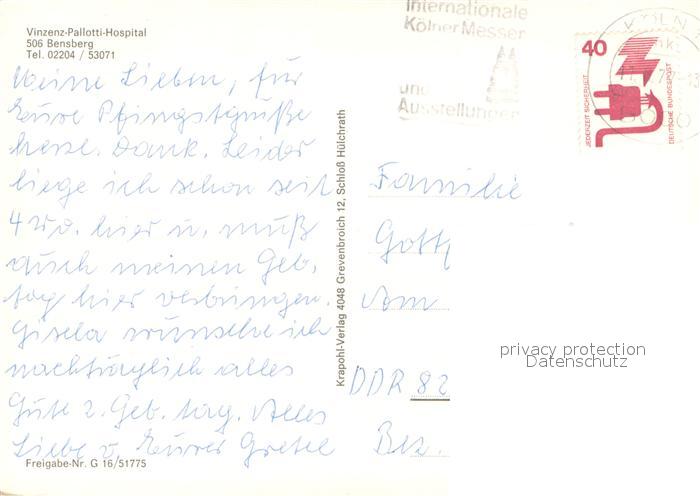 Vinzenz-Pallotti-Hospital
506 Bensberg
Tel. 02204 / 53071
Meine Lieben, für
Eure Pfingstgrüße
herzl. Dank. Leider
liege ich schon seit
4 Wo. hier u. muß
auch meinen Geb.
tag hier verbringen.
Gisela wünsche ich
nachträglich alles
Gute z. Geb. tag. Alles
Liebe v. Eurer Gretel
Freigabe-Nr. G 16/51775
Krapohl-Verlag 4048 Grevenbroich 12, Schloß Hülchrath
Internationale
Kölner Messen
und
Ausstellungen
40
JEDERZEIT SICHERHEIT
DEUTSCHE BUNDESPOST
KÖLN
Familie
Am
DDR 82
Bez.
privacy protection
Datenschutz